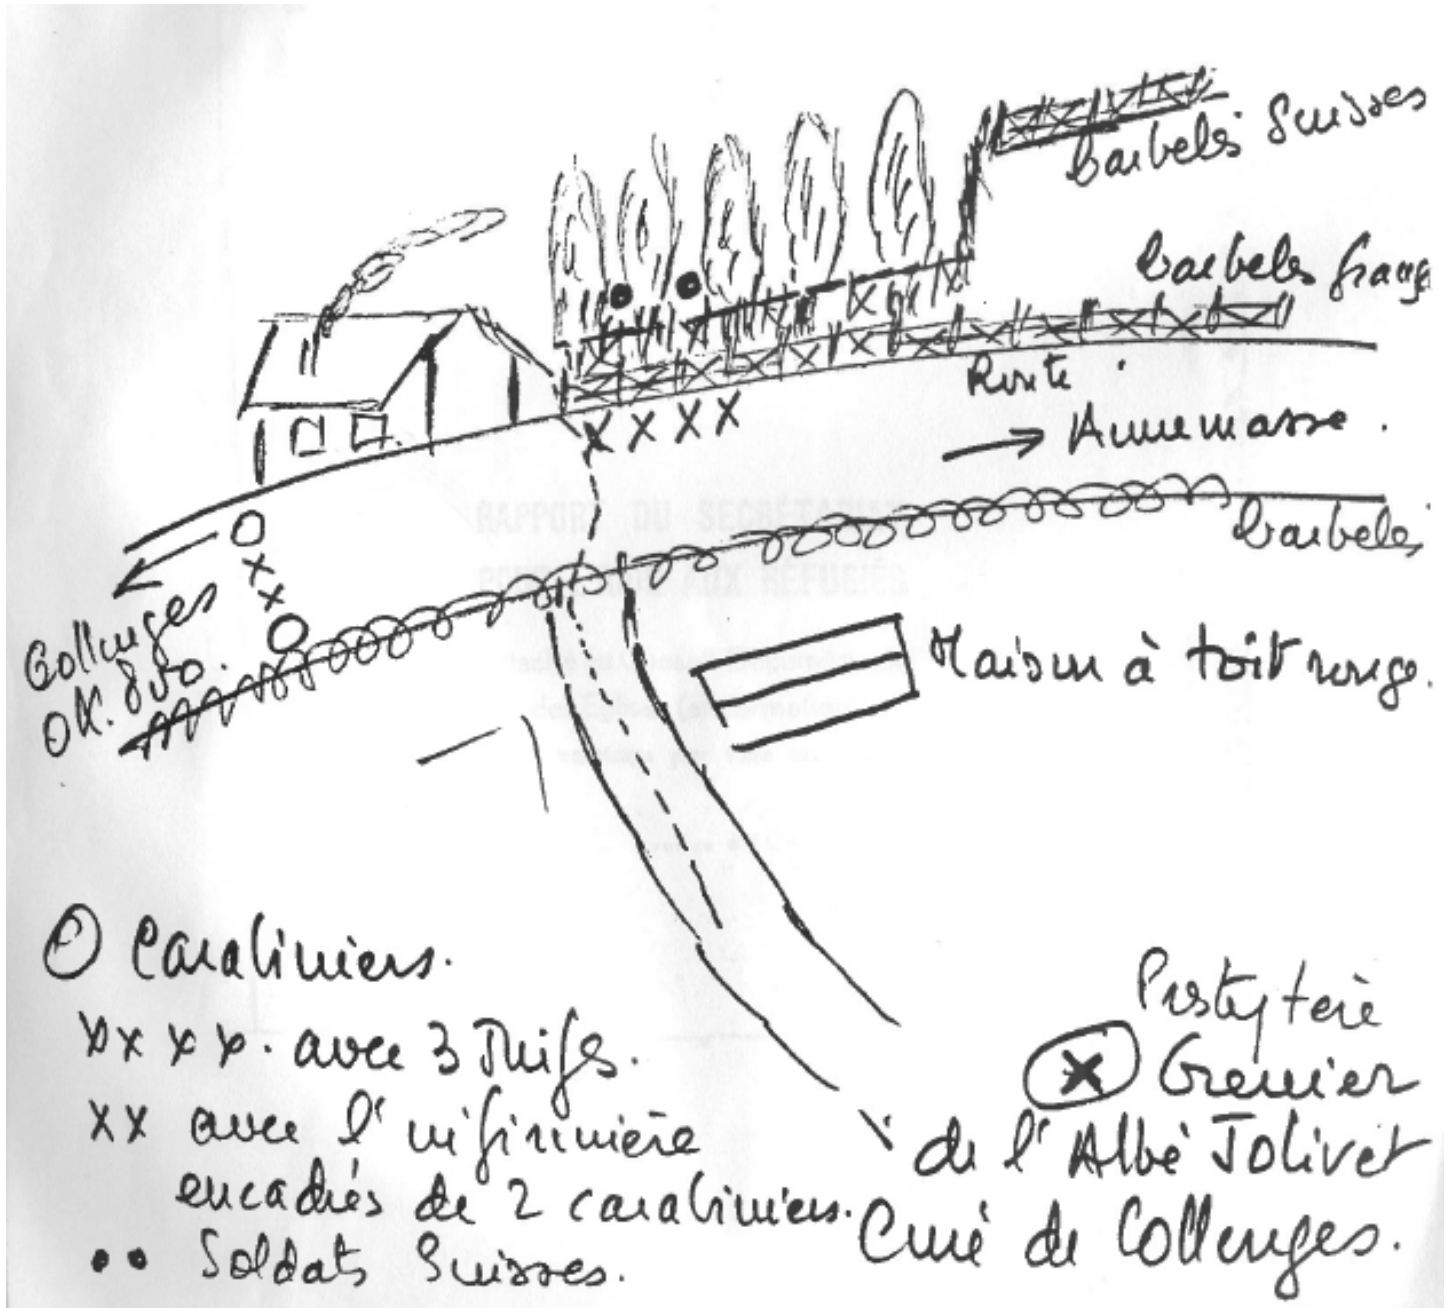 Barbelés Suisses
Barbelés franç
Route
Annemasse.
RAPPORT DU SECRÉTARIAT
Barbelés
AUX RÉFUGIÉS
Collenges
0K. 850.
Maison à toit rouge.
O Carabiniers.
xx x x. avec 3 Juifs.
xx avec l'infirmière
encadrés de 2 carabiniers.
•• Soldats Suisses.
Presbytère
X Grenier
de l'Abbé Jolivet
Curé de Collenges.